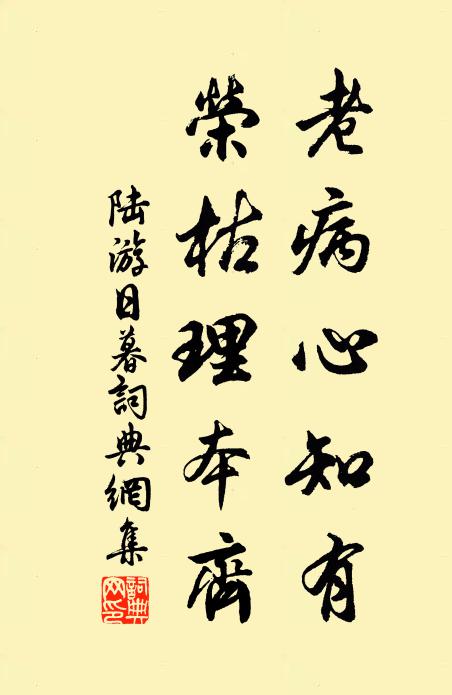 老病心知有
榮枯理本齊
陸游日暮詞典網集
詞典网印